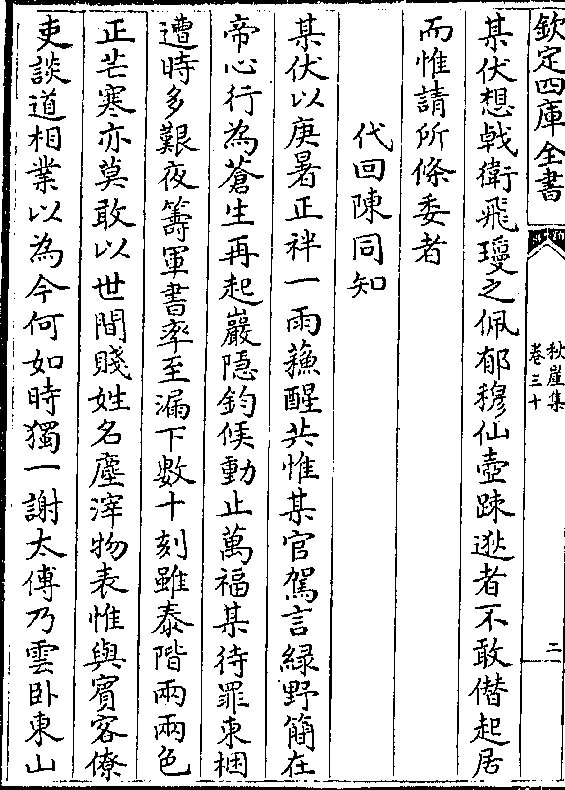 欽定四庫全書
秋崖集
卷三十
二
某伏想㦸衛飛瓊之佩郁穆仙壺踈逖者不敢僣起居
而惟請所條委者
代回陳同知
某伏以庚暑正袢一雨蘓醒共惟某官駕言緑野簡在
帝心行為蒼生再起巖隠鈞候動止萬福某待罪東梱
遭時多艱夜籌軍書率至漏下數十刻雖泰階兩兩色
正芒寒亦莫敢以世間賤姓名塵滓物表惟與賓客僚
吏談道相業以為今何如時獨一謝太傅乃雲卧東山